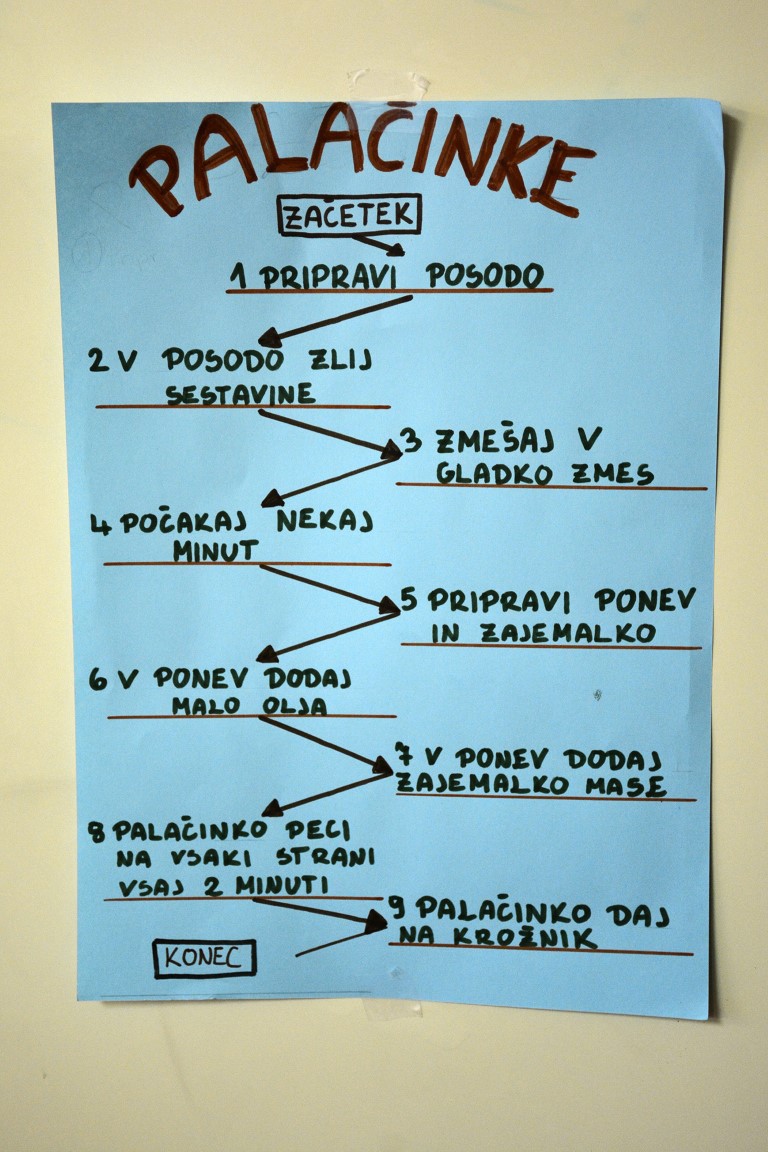 PALAČINKE
ZAČETEK
1 PRIPRAVI POSODO
2 V POSODO ZLIJ
SESTAVINE
3 ZMEŠAJ V
GLADKO ZMES
4 POČAKAJ NEKAJ
MINUT
5 PRIPRAVI PONEV
IN ZAJEMALKO
6 V PONEV DODAJ
MALO OLJA
7 V PONEV DODAJ
ZAJEMALKO MASE
8 PALAČINKO PECI
NA VSAKI STRANI
VSAJ 2 MINUTI
9 PALAČINKO DAJ
NA KROŽNIK
KONEC